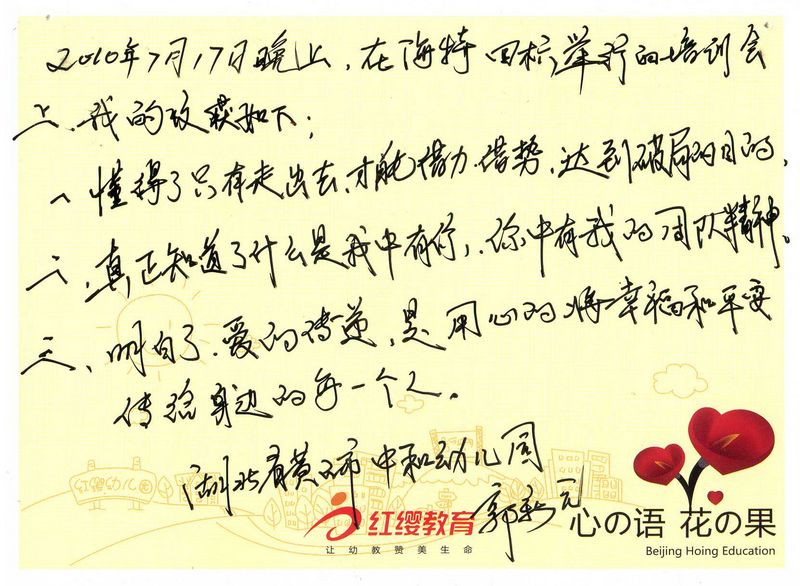 2010年7月17日晚上,在海特国标举行的培训会
上,我的收获如下:
一、懂得了只有走出去,才能借力借势,达到破局的目的,
二、真正知道了什么是我中有你,你中有我的团队精神。
三、明白了爱的传递,是用心的将幸福和平安
传给身边的每一个人。
湖北省黄石市中和幼儿园
郭
红缨幼儿园
红缨教育
让幼教赞美生命
心の语 花の果
Beijing Hoing Education